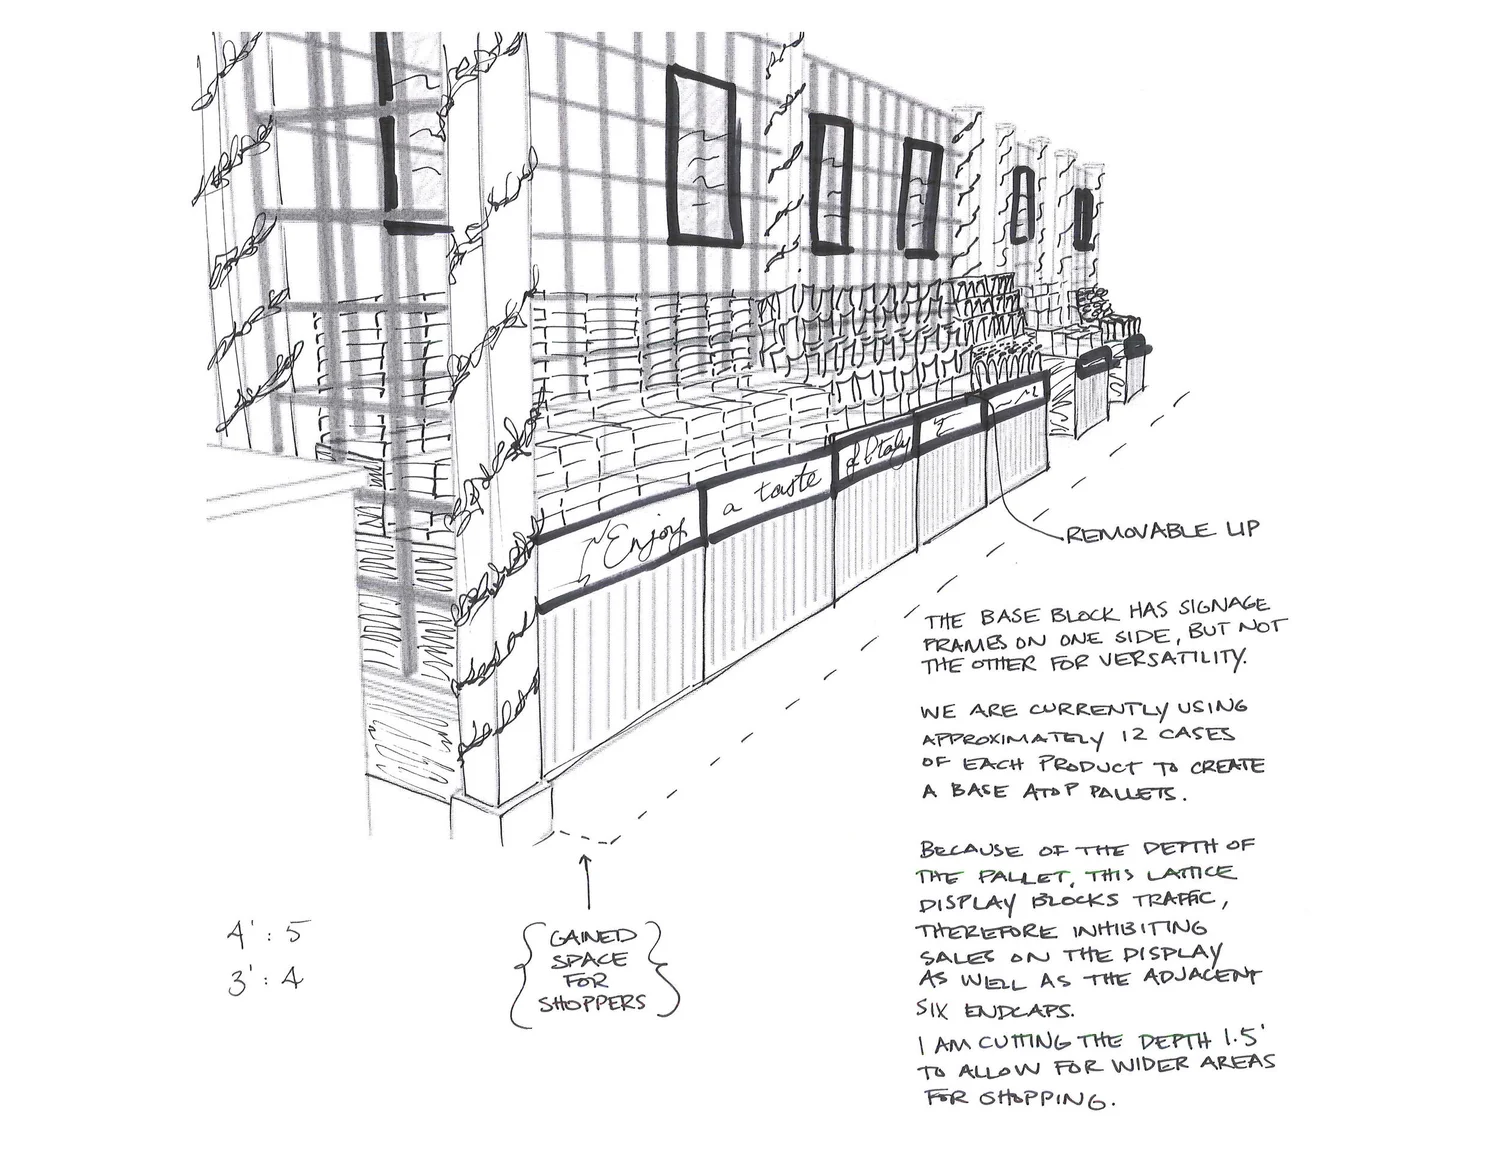 Enjoy a taste of Italy
REMOVABLE LIP
THE BASE BLOCK HAS SIGNAGE
FRAMES ON ONE SIDE, BUT NOT
THE OTHER FOR VERSATILITY.
WE ARE CURRENTLY USING
APPROXIMATELY 12 CASES
OF EACH PRODUCT TO CREATE
A BASE ATOP PALLETS.
BECAUSE OF THE DEPTH OF
THE PALLET, THIS LATTICE
DISPLAY BLOCKS TRAFFIC,
THEREFORE INHIBITING
SALES ON THE DISPLAY
AS WELL AS THE ADJACENT
SIX ENDCAPS.
I AM CUTTING THE DEPTH 1.5'
TO ALLOW FOR WIDER AREAS
FOR SHOPPING.
4' : 5
3' : 4
GAINED
SPACE
FOR
SHOPPERS